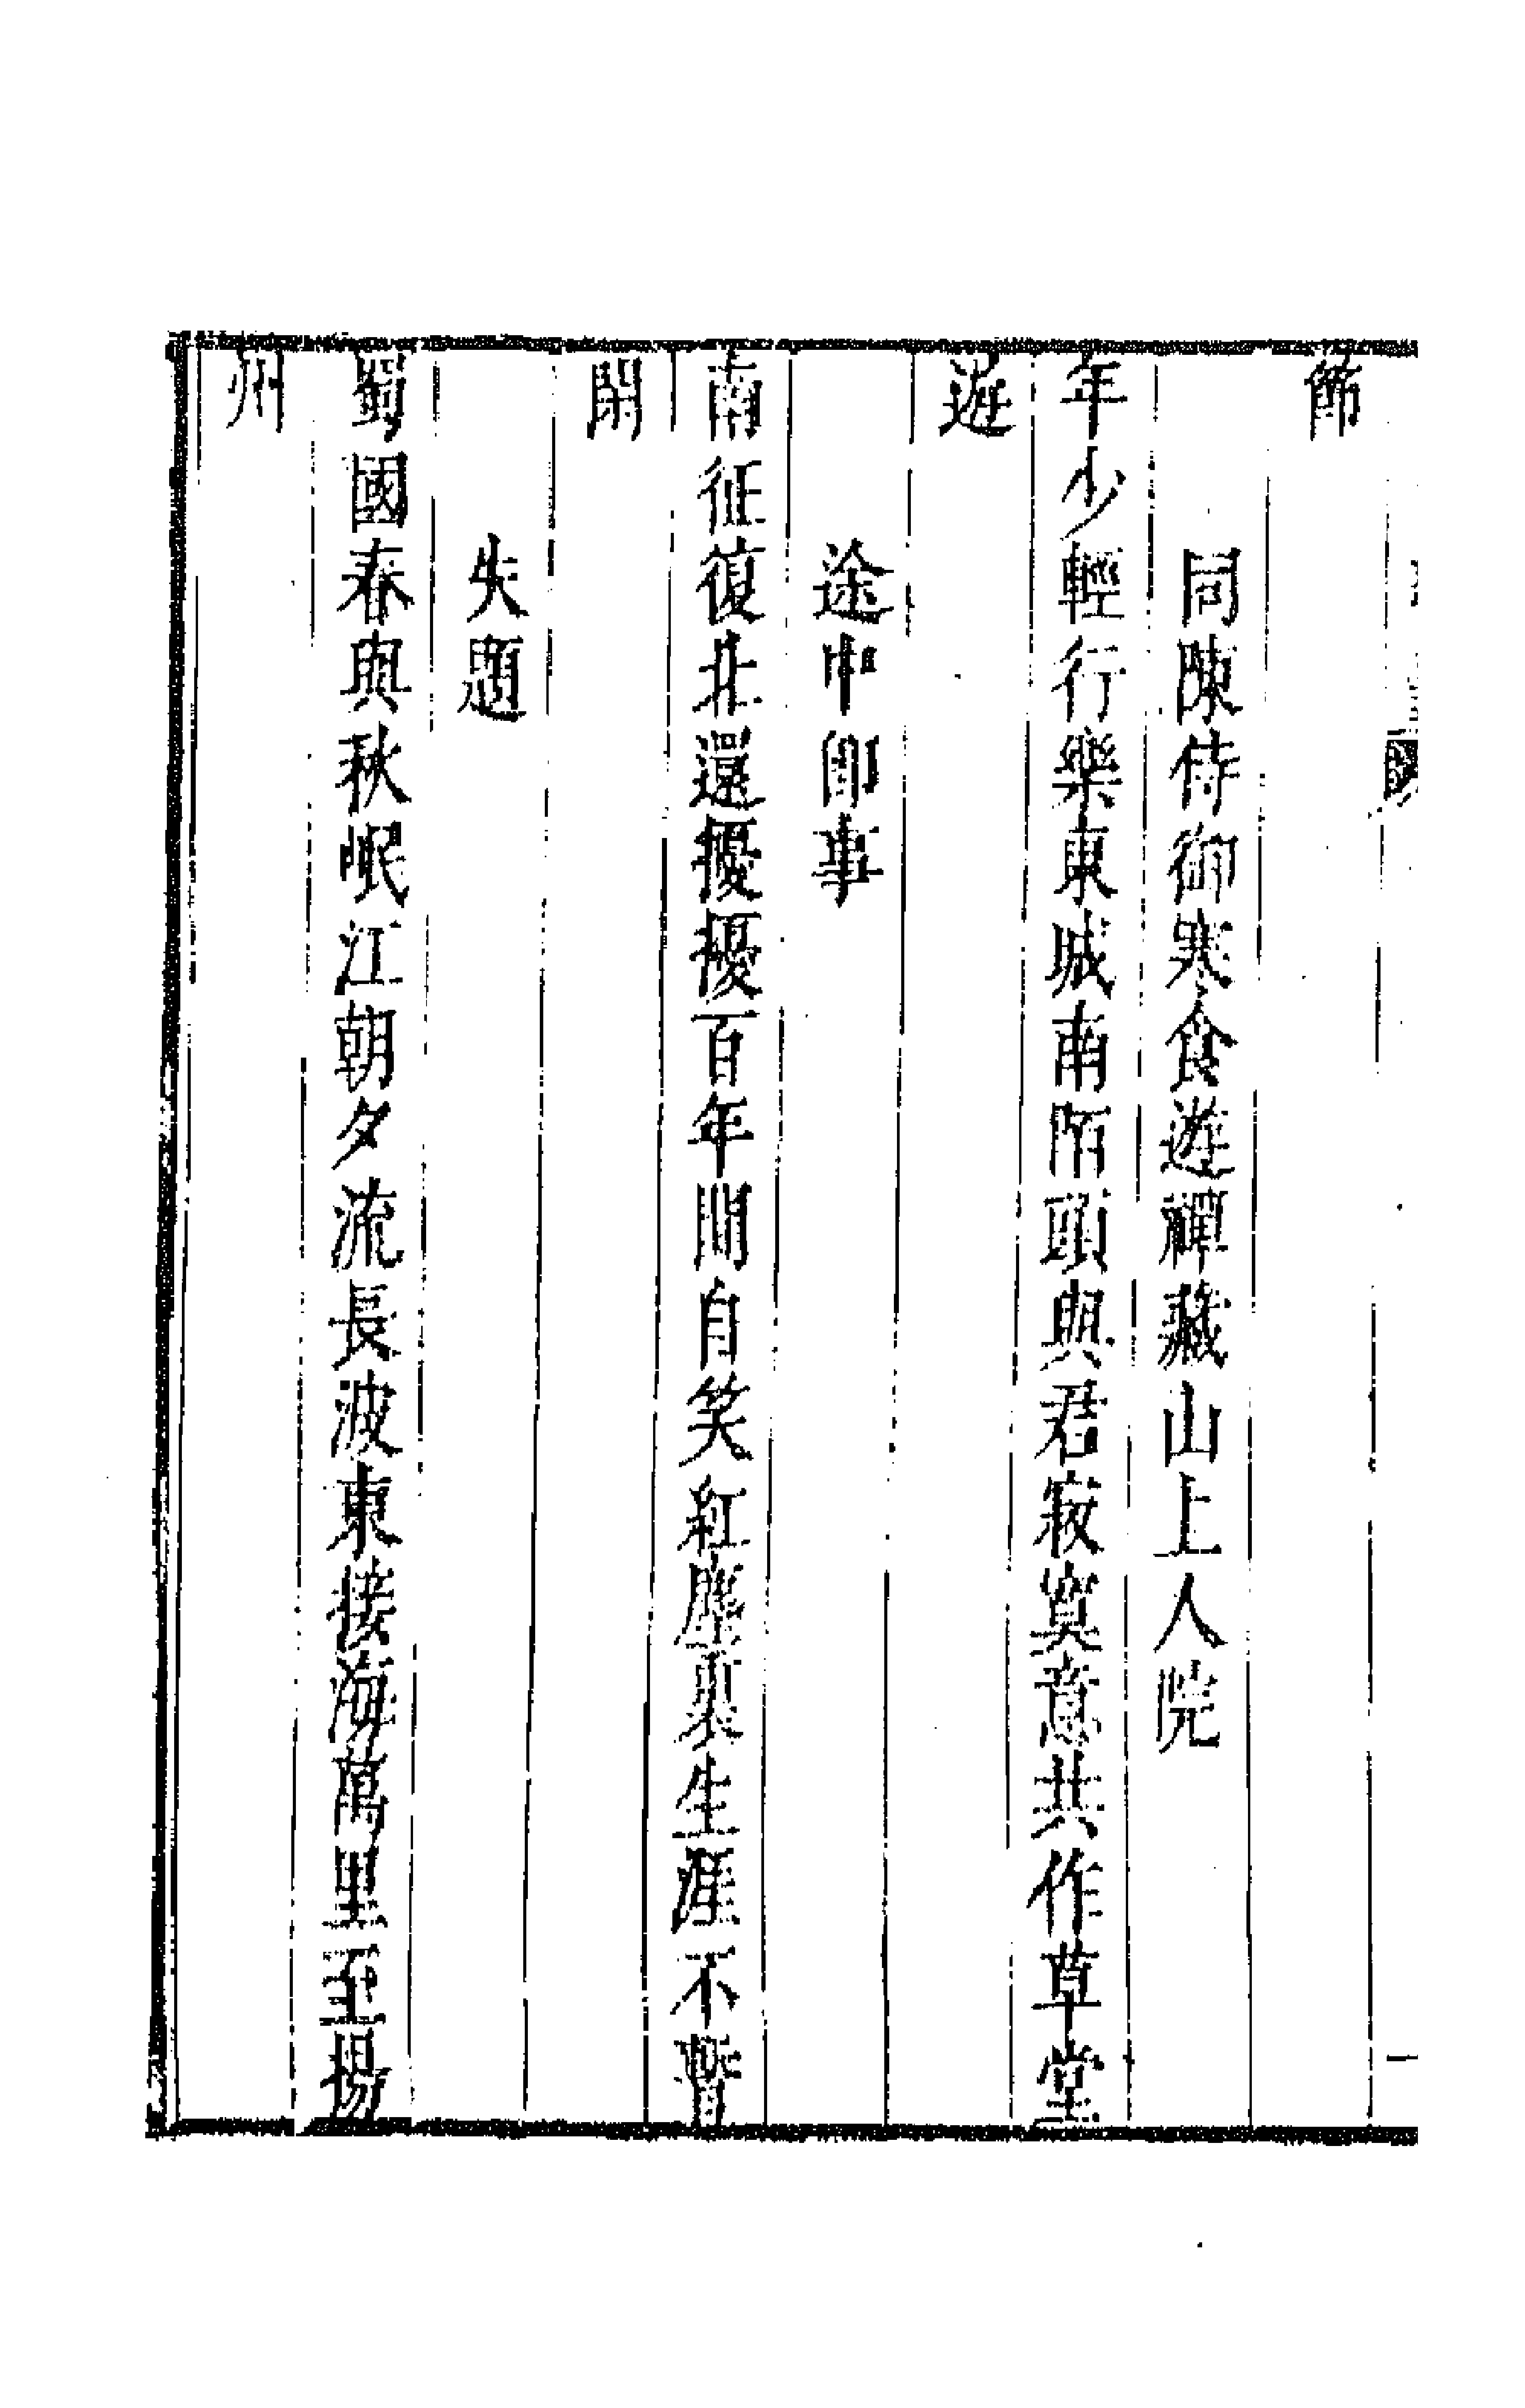 節
同陳侍御寒食遊禪藏山上人院
年少輕行樂東城南陌頭與君寂寞意共作草堂
遊
途中卽事
南征復北還擾擾百年間自笑紅塵裏生涯不暫
閑
失題
蜀國春與秋岷江朝夕流長波東接海萬里至揚
州